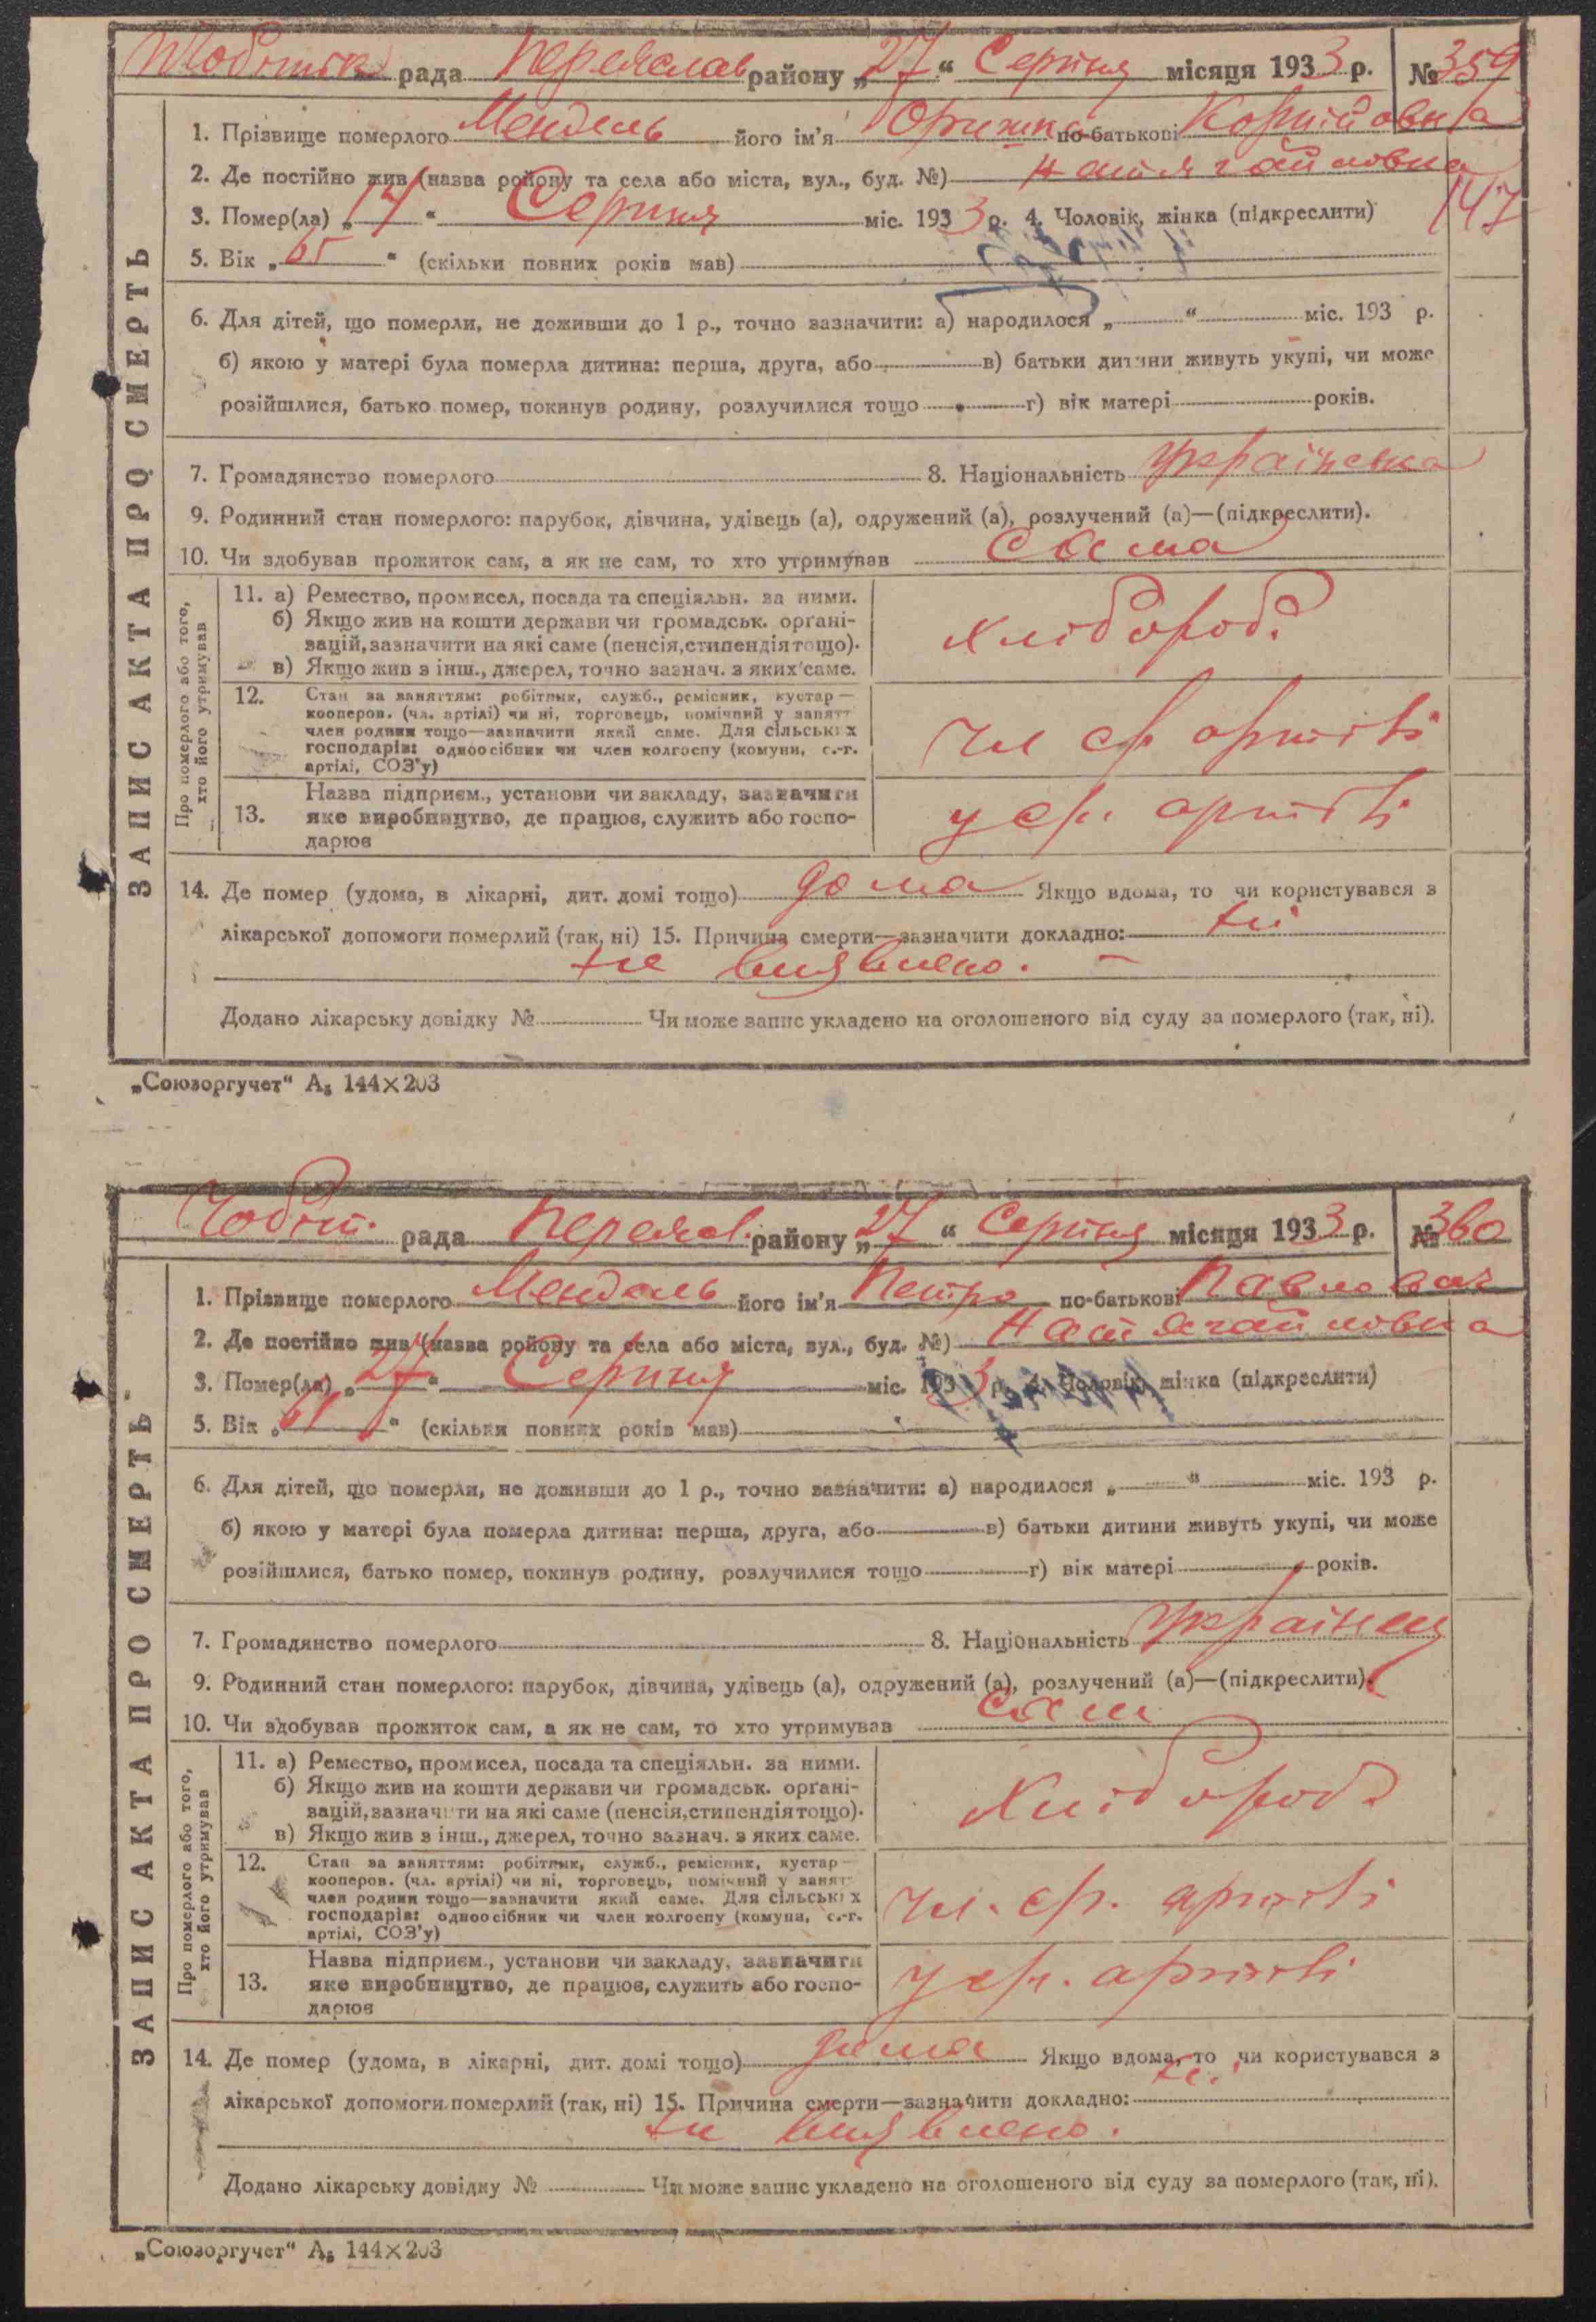 рада Переяслав району „27“ Серпня місяця 1933 р. № 359
1. Прізвище померлого Мендель його ім'я Оришка по-батькові Корнійовна
2. Де постійно жив (назва ройону та села або міста, вул., буд. №)
147
3. Помер(ла) „ “ Серпня міс. 1933 р. 4. Чоловік, жінка (підкреслити)
5. Вік „65“ (скільки повних років мав)
6. Для дітей, що померли, не доживши до 1 р., точно зазначити: а) народилося „ “ міс. 193 р.
б) якою у матері була померла дитина: перша, друга, або в) батьки дитини живуть укупі, чи може
розійшлися, батько помер, покинув родину, розлучилися тощо г) вік матері років.
7. Громадянство померлого 8. Національність українська
9. Родинний стан померлого: парубок, дівчина, удівець (а), одружений (а), розлучений (а)—(підкреслити).
10. Чи здобував прожиток сам, а як не сам, то хто утримував сама
ЗАПИС АКТА ПРО СМЕРТЬ
Про померлого або того,
хто його утримував
11. а) Ремество, промисел, посада та спеціяльн. за ними.
б) Якщо жив на кошти держави чи громадськ. орґані-
зацій, зазначити на які саме (пенсія, стипендія тощо).
в) Якщо жив з інш., джерел, точно зазнач. з яких саме.
хлібороб.
12. Стан за заняттям: робітник, служб., ремісник, кустар—
кооперов. (чл. артілі) чи ні, торговець, помічний у занятт
член родини тощо—зазначити який саме. Для сільських
господарів: одноосібник чи член колгоспу (комуни, с.-г.
артілі, СОЗ'у)
чл ср артілі
13. Назва підприєм., установи чи закладу, зазначити
яке виробництво, де працює, служить або госпо-
дарює
у ср. артілі
14. Де помер (удома, в лікарні, дит. домі тощо) дома Якщо вдома, то чи користувався з
лікарської допомоги померлий (так, ні) 15. Причина смерти—зазначити докладно: ні
не виявлено.
Додано лікарську довідку № Чи може запис укладено на оголошеного від суду за померлого (так, ні).
„Союзоргучет“ А5 144×203
Чобіт. рада Переяслав. району „27“ Серпня місяця 1933 р. № 360
1. Прізвище померлого Мендель його ім'я Петро по-батькові Павлович
2. Де постійно жив (назва ройону та села або міста, вул., буд. №)
3. Помер(ла) „ “ Серпня міс. 1933 р. 4. Чоловік, жінка (підкреслити)
5. Вік „ “ (скільки повних років мав)
6. Для дітей, що померли, не доживши до 1 р., точно зазначити: а) народилося „ “ міс. 193 р.
б) якою у матері була померла дитина: перша, друга, або в) батьки дитини живуть укупі, чи може
розійшлися, батько помер, покинув родину, розлучилися тощо г) вік матері років.
7. Громадянство померлого 8. Національність українец
9. Родинний стан померлого: парубок, дівчина, удівець (а), одружений (а), розлучений (а)—(підкреслити).
10. Чи здобував прожиток сам, а як не сам, то хто утримував сам
ЗАПИС АКТА ПРО СМЕРТЬ
Про померлого або того,
хто його утримував
11. а) Ремество, промисел, посада та спеціяльн. за ними.
б) Якщо жив на кошти держави чи громадськ. орґані-
зацій, зазначити на які саме (пенсія, стипендія тощо).
в) Якщо жив з інш., джерел, точно зазнач. з яких саме.
Хлібороб.
12. Стан за заняттям: робітник, служб., ремісник, кустар—
кооперов. (чл. артілі) чи ні, торговець, помічний у занят
член родини тощо—зазначити який саме. Для сільських
господарів: одноосібник чи член колгоспу (комуни, с.-г.
артілі, СОЗ'у)
чл. ср. артілі
13. Назва підприєм., установи чи закладу, зазначити
яке виробництво, де працює, служить або госпо-
дарює
у ср. артілі
14. Де помер (удома, в лікарні, дит. домі тощо) дома Якщо вдома, то чи користувався з
лікарської допомоги померлий (так, ні) 15. Причина смерти—зазначити докладно: ні
не виявлено.
Додано лікарську довідку № Чи може запис укладено на оголошеного від суду за померлого (так, ні).
„Союзоргучет“ А5 144×203